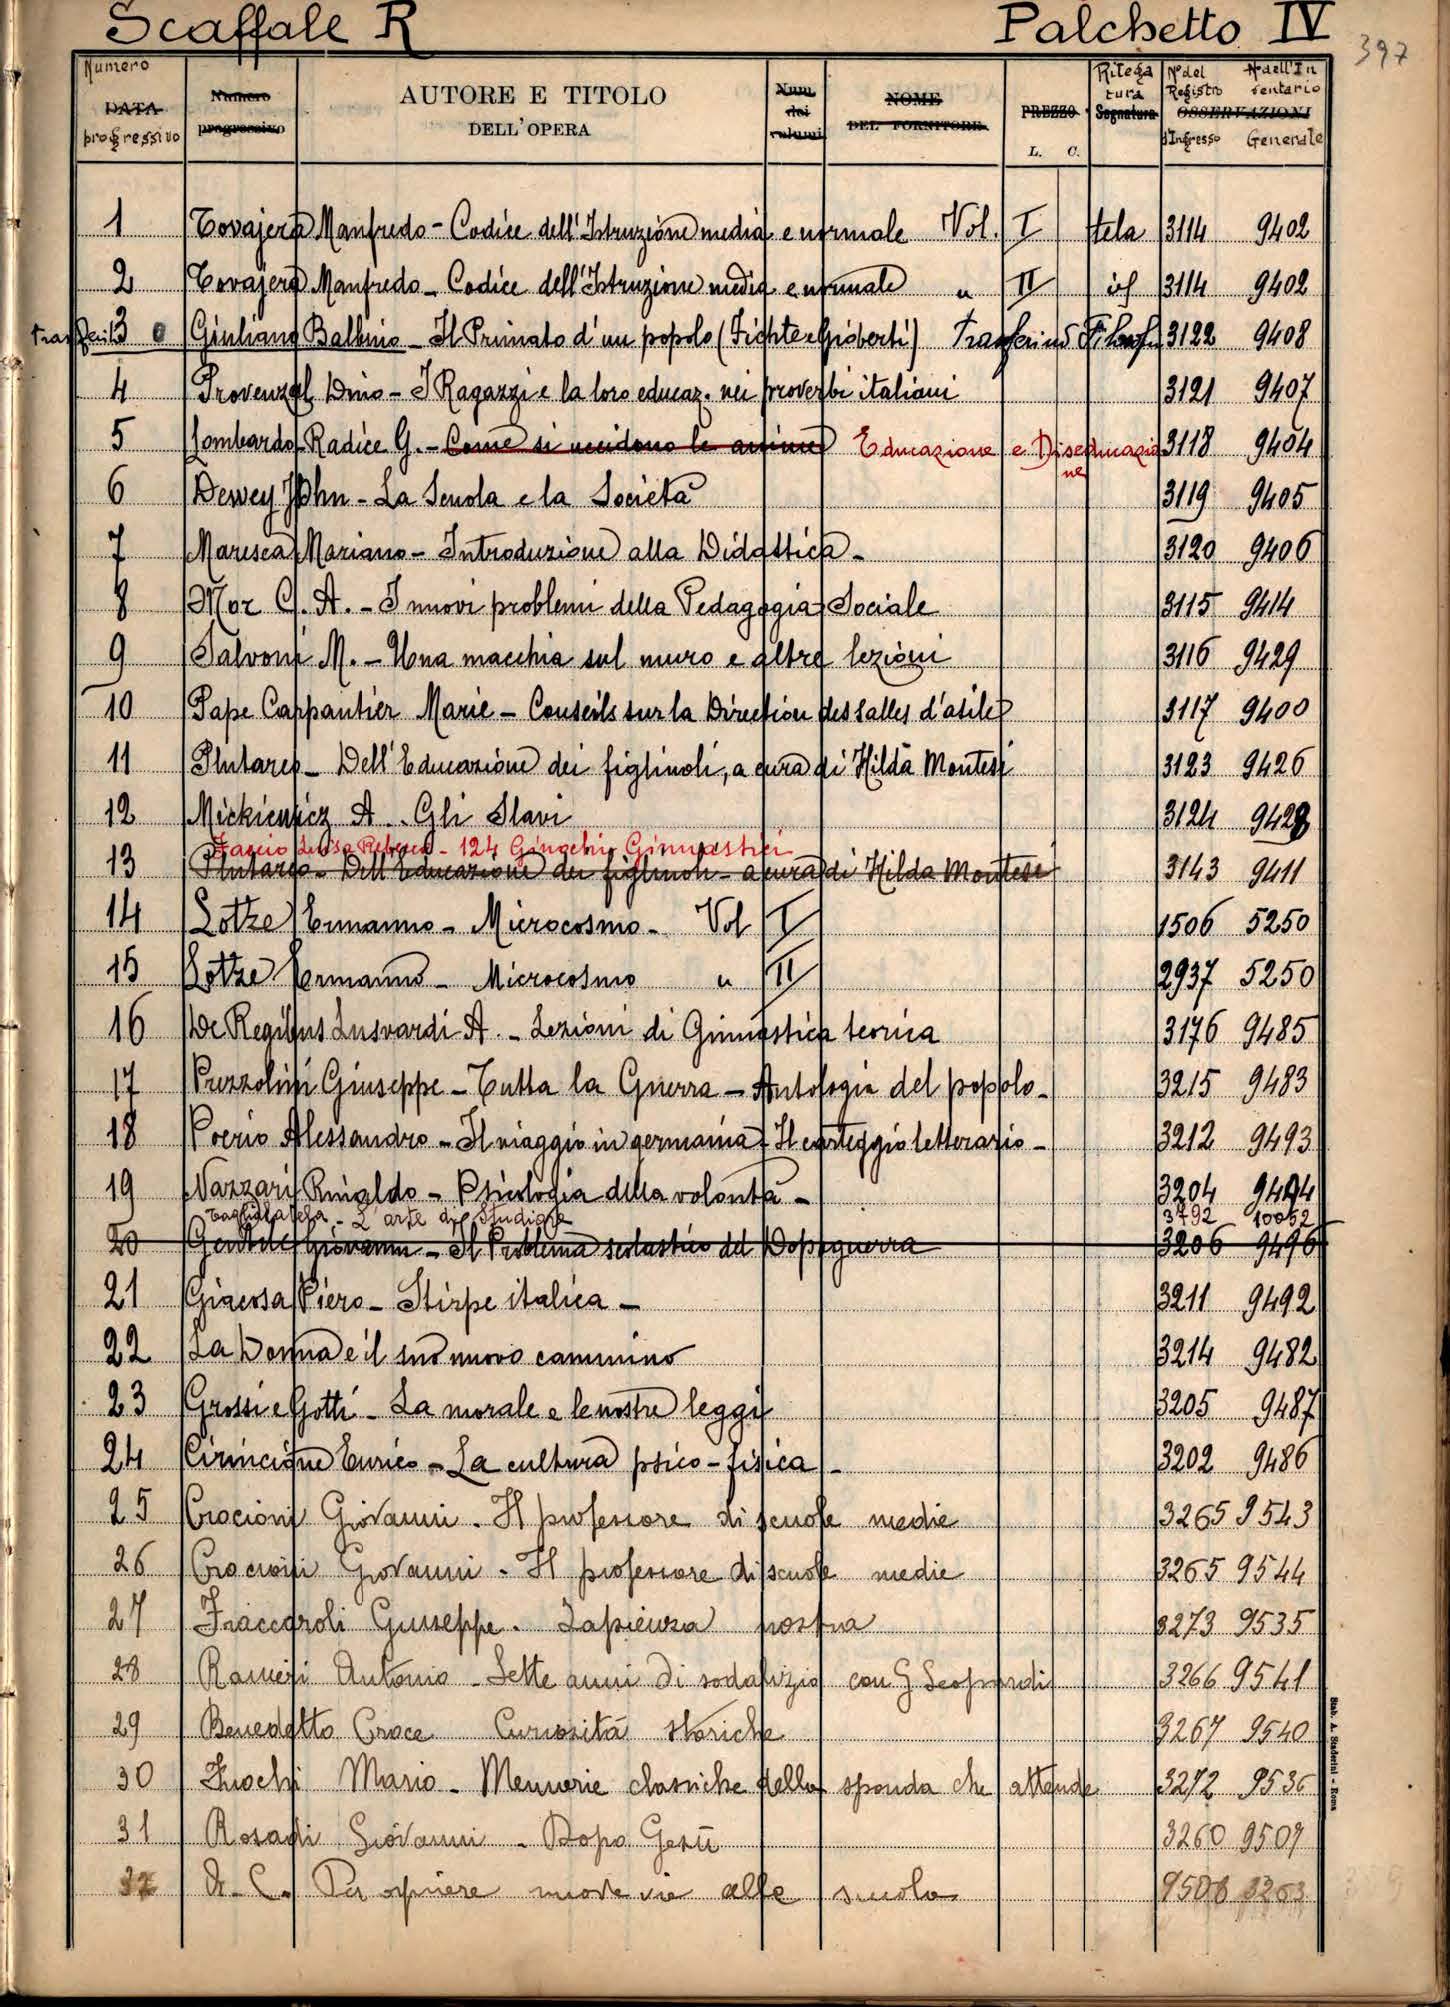 Scaffale R Palchetto IV
397
Numero DATA progressivo
Numero progressivo
AUTORE E TITOLO
DELL'OPERA
Num. dei volumi
NOME
DEL FORNITORE
PREZZO
L. C.
Rilegatura Segnatura
N° del Registro d'Ingresso
N° dell'Inventario Generale
OSSERVAZIONI
1 Tovajera Manfredo - Codice dell'Istruzione media e normale Vol. I tela 3114 9402
2 Tovajera Manfredo - Codice dell'Istruzione media e normale " II id 3114 9402
trasferito 3 Giuliano Balbino - Il Primato d'un popolo (Fichte e Gioberti) Trasferito Filosofia 3122 9408
4 Provenzal Dino - I Ragazzi e la loro educaz. nei proverbi italiani 3121 9407
5 Lombardo-Radice G. - Come si uccidono le anime Educazione e Diseducazione 3118 9404
6 Dewey John - La Scuola e la Società 3119 9405
7 Maresca Mariano - Introduzione alla Didattica - 3120 9406
8 Mor C. A. - I nuovi problemi della Pedagogia Sociale 3115 9414
9 Salvoni M. - Una macchia sul muro e altre lezioni 3116 9429
10 Pape Carpantier Marie - Conseils sur la Direction des salles d'asile 3117 9400
11 Plutarco - Dell'Educazione dei figliuoli, a cura di Hilda Montesi 3123 9426
12 Mickiewicz A. - Gli Slavi 3124 9428
Faccio Luisa Rebecca - 124 Ginochi Ginnastici
13 Plutarco - Dell'Educazione dei figliuoli - a cura di Hilda Montesi 3143 9411
14 Lotze Ermanno - Microcosmo - Vol I 1506 5250
15 Lotze Ermanno - Microcosmo " II 2937 5250
16 De Regibus Lusvardi A. - Lezioni di Ginnastica teorica 3176 9485
17 Prezzolini Giuseppe - Tutta la Guerra - Antologia del popolo - 3215 9483
18 Poerio Alessandro - Il viaggio in germania - Il carteggio letterario - 3212 9493
19 Nazzari Rinaldo - Psicologia della volontà - 3204 9494
Tagliabatela - L'arte di Studiare 3792 10052
20 Gentile Giovanni - Il Problema scolastico del Dopoguerra 3206 9496
21 Giacosa Piero - Stirpe italica - 3211 9492
22 La Donna e il suo nuovo cammino 3214 9482
23 Grossi e Gotti - La morale e le nostre leggi 3205 9487
24 Cirincione Enrico - La cultura psico-fisica - 3202 9486
25 Crocioni Giovanni - Il professore di scuole medie 3265 9543
26 Crocioni Giovanni - Il professore di scuole medie 3265 9544
27 Fraccaroli Giuseppe - Sapienza nostra 3273 9535
28 Ranieri Antonio - Sette anni di sodalizio con G Leopardi 3266 9541
29 Benedetto Croce Curiosità storiche 3267 9540
30 Mario - Memorie classiche della sponda che attende 3272 9536
31 Rosadi Giovanni - Dopo Gesù 3260 9507
32 A. C. Per aprire nuove vie alle scuola 9508 3263
Stab. A. Staderini - Roma